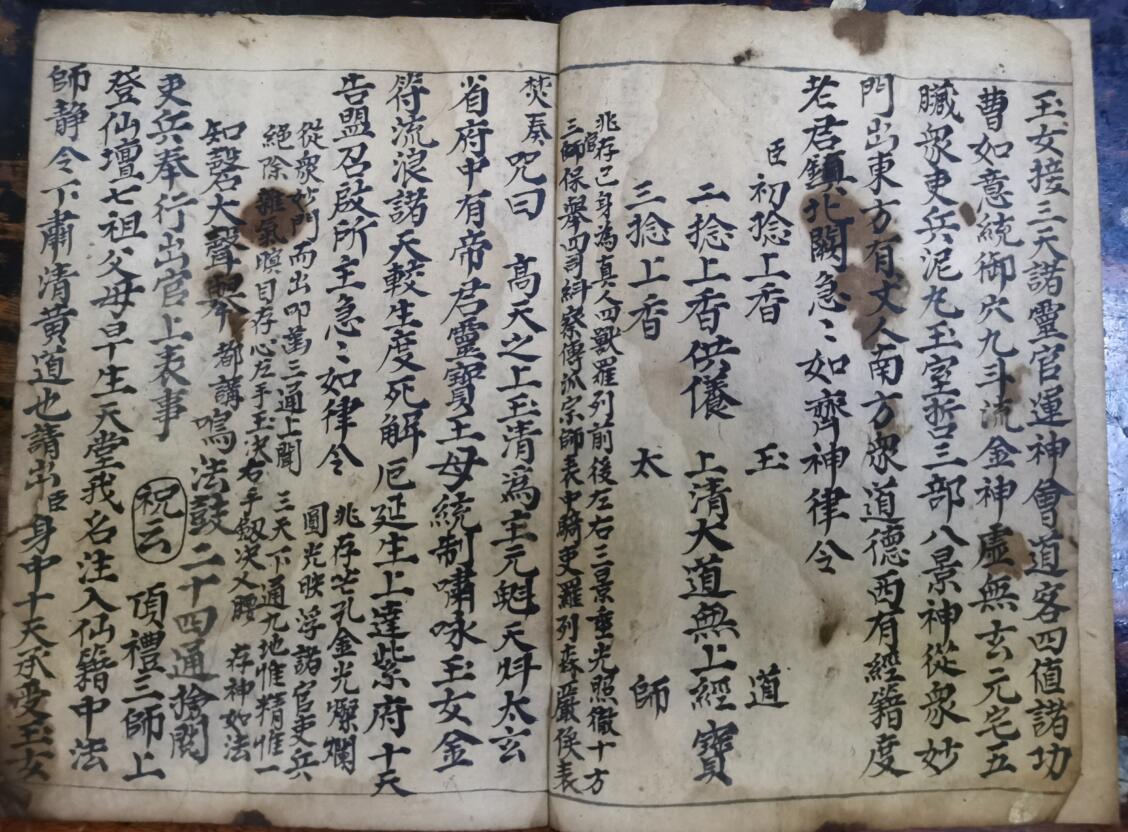 玉女接三天諸靈官運神會道客四值諸功
曹如意統御穴九斗流金神虛無玄元宅五
臟衆吏兵泥丸玉室哲三部八景神從衆妙
門出東方有丈人南方衆道德西有經籍度
老君鎮北闕急〻如齊神律令
臣初捻上香 玉 道
二捻上香供養 上清大道無上經寶
三捻上香 太 師
兆存己身為真人四獸羅列前後左右三景垂光照徹十方
三師保舉四司糾察傳派宗師表中騎吏羅列森嚴俟表
焚奏咒曰 高天之上玉清為主元魁天斗太玄
省府中有帝君靈寶王母統制嘯咏玉女金
符流浪諸天較生度死解厄延生上達紫府十天
告盟召啟所主急〻如律令
兆存芒孔金光燦爛
圓光映浮諸官吏兵
從衆妙門而出叩齒三通上聞
三天下通九地惟精惟一
絕除雜氣瞑目存心左手玉決右手劔決叉腰 存神如法
知磬大聲 都講鳴法鼓二十四通
吏兵奉行出官上表事 祝云 頂禮三師上
登仙壇七祖父母早生天堂我名注入仙籍中法
師靜令下肅清黃道也請出臣身中十天承受玉女